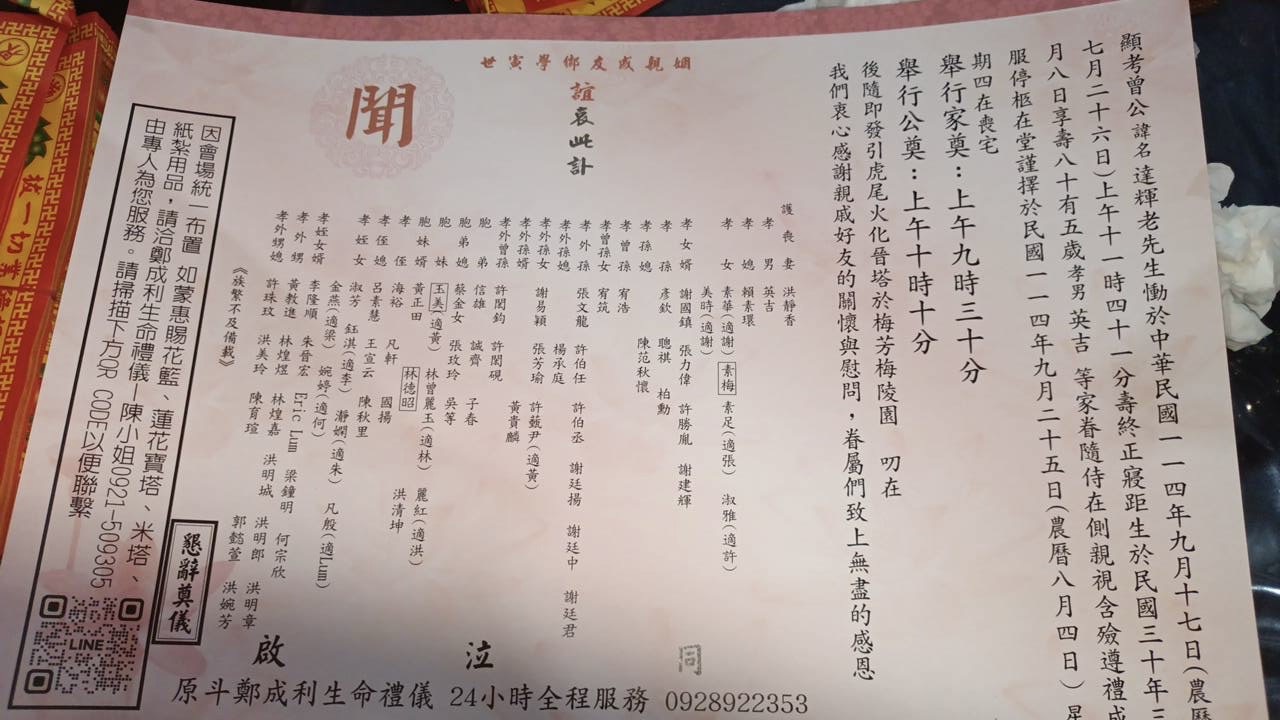 顯考曾公諱名達輝老先生慟於中華民國一一四年九月十七日(農曆
七月二十六日)上午十一時四十一分壽終正寢距生於民國三十年三
月八日享壽八十有五歲孝男英吉等家眷隨侍在側親視含殮遵禮成
服停柩在堂謹擇於民國一一四年九月二十五日(農曆八月四日)星
期四在喪宅
舉行家奠：上午九時三十分
舉行公奠：上午十時十分
後隨即發引虎尾火化晉塔於梅芳梅陵園 叨在
我們衷心感謝親戚好友的關懷與慰問，眷屬們致上無盡的感恩
姻親戚友鄉學寅世
誼哀此訃
聞
護喪妻 洪靜香
孝男 英吉
孝媳 賴素環
孝女 素華(適謝) 素梅 素足(適張) 淑雅(適許)
美時(適謝)
孝女婿 謝國鎮 張力偉 許勝胤 謝建輝
孝孫 彥欽 聰祺 柏勳
孝孫媳 陳范秋懷
孝曾孫 宥浩
孝曾孫女 宥筑
孝外孫 張文龍 許伯任 許伯丞 謝廷揚 謝廷中 謝廷君
孝外孫媳 楊承庭
孝外孫女 謝易穎 張芳瑜 許藙尹(適黃)
孝外孫婿 黃貴麟
孝外曾孫 許閎鈞 許閎硯
胞弟 信雄 誠齊 子春
胞弟媳 蔡金女 張玫玲 吳等
胞妹 玉美(適黃) 林曾麗玉(適林) 麗紅(適洪)
胞妹婿 黃正田 林德昭 洪清坤
孝侄 海裕 凡軒 國揚
孝侄媳 呂素慧 王宣云 陳秋里
孝姪女 淑芳 鈺淇(適李) 瀞嫻(適朱) 凡殷(適Lum)
金燕(適梁) 婉婷(適何)
孝姪女婿 李隆順 朱晉宏 Eric Lum 梁鐘明 何宗欣
孝外甥 黃教進 林煌煜 林煌嘉 洪明城 洪明郎 洪明章
孝外甥媳 許珠玟 洪美玲 陳育瑄 郭懿萱 洪婉芳
《族繁不及備載》
同
泣
啟
懇辭奠儀
因會場統一布置 如蒙惠賜花籃、蓮花寶塔、米塔、
紙紮用品，請洽鄭成利生命禮儀—陳小姐0921-509305
由專人為您服務。請掃描下方QR CODE以便聯繫
LINE
原斗鄭成利生命禮儀 24小時全程服務 0928922353